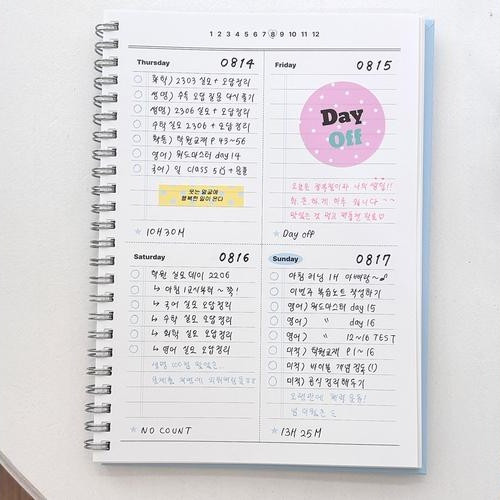 1 2 3 4 5 6 7 8 9 10 11 12
Thursday 0814
화학) 2303 실모 + 오답정리
생명) 수특 오답 질문 다시 풀기
생명) 2306 실모 + 오답정리
수학 실모 2306 + 오답정리
확통) 학원교재 P 43~56
영어) 워드마스터 day 14
국어) 일 class 5강 +
웃는 얼굴에
행복한 일이 온다
10H 30M
Friday 0815
Day
Off
오늘은 광복절이자 나의 생일!!
하루 쉽니다
맛있는 것 먹고
Day off
Saturday 0816
학원 실모데이 2206
↳ 아침 1교시부터 ~ 쭉!
↳ 국어 실모 오답정리
↳ 수학 실모 오답정리
↳ 화학 실모 오답정리
↳ 영어 실모 오답정리
생명
NO COUNT
Sunday 0817
아침 러닝 1H
이번주 복습노트 작성하기
영어) 워드마스터 day 15
영어) " day 16
영어) " 12~16 TEST
미적) 학원교재 P 1~16
미적) 바이블 개념 정독(!)
미적) 공식 정리해두기
오랜만에 체력 운동!
넘 더웠슨
13H 25M